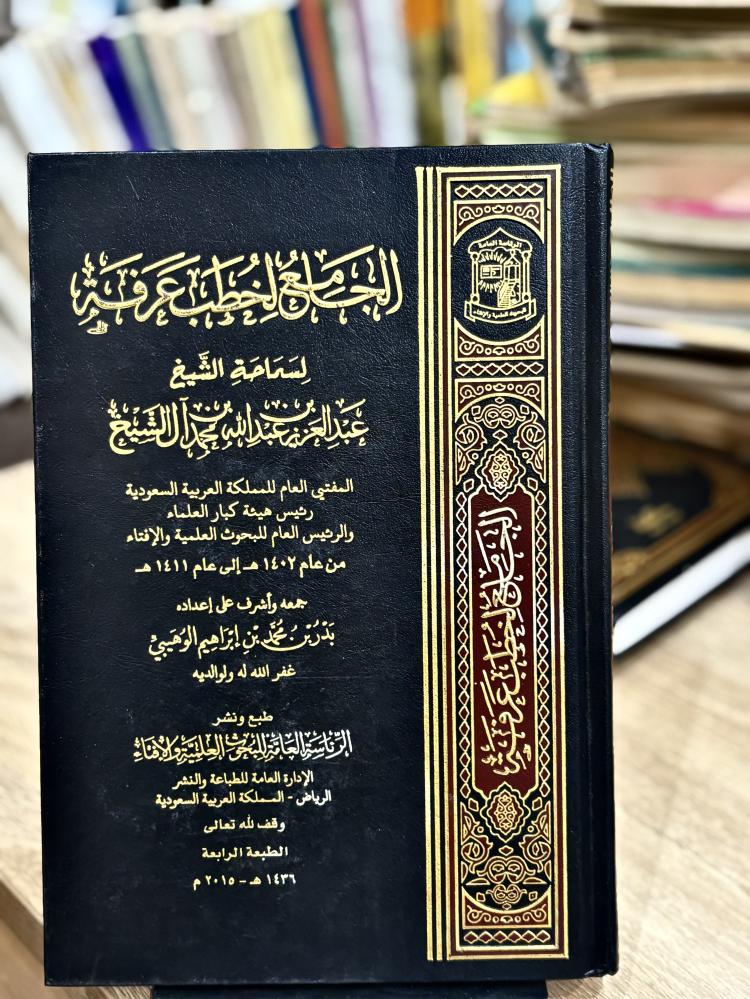 الجامع لخطب عرفة
لسماحة الشيخ
عبد العزيز بن عبد الله بن محمد آل الشيخ
المفتي العام للمملكة العربية السعودية
رئيس هيئة كبار العلماء
والرئيس العام للبحوث العلمية والإفتاء
من عام ١٤٠٢ هـ إلى عام ١٤١١ هـ
جمعه وأشرف على إعداده
بدر بن محمد بن إبراهيم الوهيبي
غفر الله له ولوالديه
طبع ونشر
الرئاسة العامة للبحوث العلمية والإفتاء
الإدارة العامة للطباعة والنشر
الرياض - المملكة العربية السعودية
وقف لله تعالى
الطبعة الرابعة
١٤٣٦ هـ - ٢٠١٥ م
الرئاسة العامة
للبحوث العلمية والإفتاء
الجامع لخطب عرفة